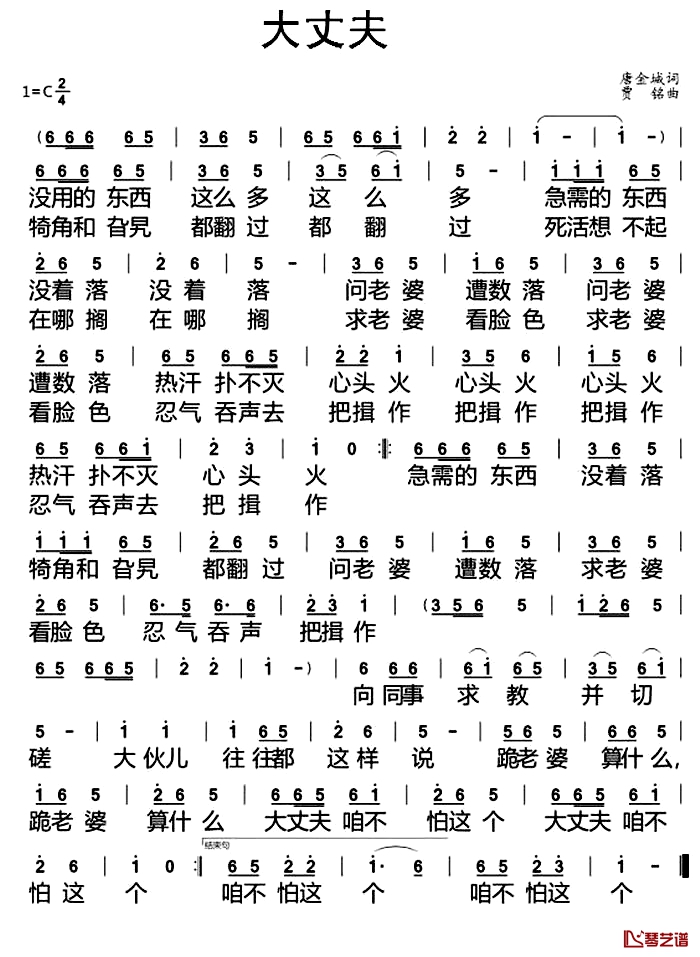 大丈夫
1=C 2/4
唐金城词
贾 铭曲
( 6 6 6 6 5 | 3 6 5 | 3 6 5 6 5 6 6 i | 2 2 | i - | i - )
6 6 6 6 5 | 3 6 5 | 3 5 6 i | 5 - | i i i 6 5 |
没用的 东西 这么 多 这 么 多 急需的 东西
犄角和 旮旯 都翻 过 都 翻 过 死活想 不起
2 6 5 | 2 6 | 5 - | 3 6 5 | i 6 5 | 3 6 5 |
没着 落 没 着 落 问老 婆 遭数 落 问老 婆
在哪 搁 在 哪 搁 求老 婆 看脸 色 求老 婆
2 6 5 | 6 5 6 6 5 | 2 2 i | 3 5 6 | i 5 6 |
遭数 落 热汗 扑不灭 心头 火 心头 火 心头 火
看脸 色 忍气 吞声去 把揖 作 把揖 作 把揖 作
6 5 6 6 i | 2 3 | i 0 :‖: 6 6 6 6 5 | 3 6 5 |
热汗 扑不灭 心 头 火 急需的 东西 没着 落
忍气 吞声去 把 揖 作
i i i 6 5 | 3 6 5 | 3 6 5 | i 6 5 | 3 6 5 |
犄角和 旮旯 都翻 过 问老 婆 遭数 落 求老 婆
2 6 5 | 6· 5 6· 6 | 2 3 i | ( 3 5 6 5 | i 2 6 5 |
看脸 色 忍 气 吞 声 把揖 作
6 5 6 6 5 | 2 2 | i - ) | 6 6 6 | 6 i 5 | 3 5 6 i |
向 同事 求 教 并 切
5 - | i i | i 6 5 | 2 2 5 | 5 6 5 | 3 6 5 |
磋 大 伙儿 往 往都 这样 说 跪老 婆 算什 么,
i 6 5 | 2 6 5 | 6 6 5 6 i | 2 6 5 | 6 6 5 6 i |
跪老 婆 算什 么 大丈夫 咱不 怕这 个 大丈夫 咱不
结束句
2 6 | i 0 :‖ 6 5 2 2 | i· 6 | 6 5 2 3 | i - ‖
怕 这 个 咱不 怕这 个 咱不 怕这 个
琴艺谱